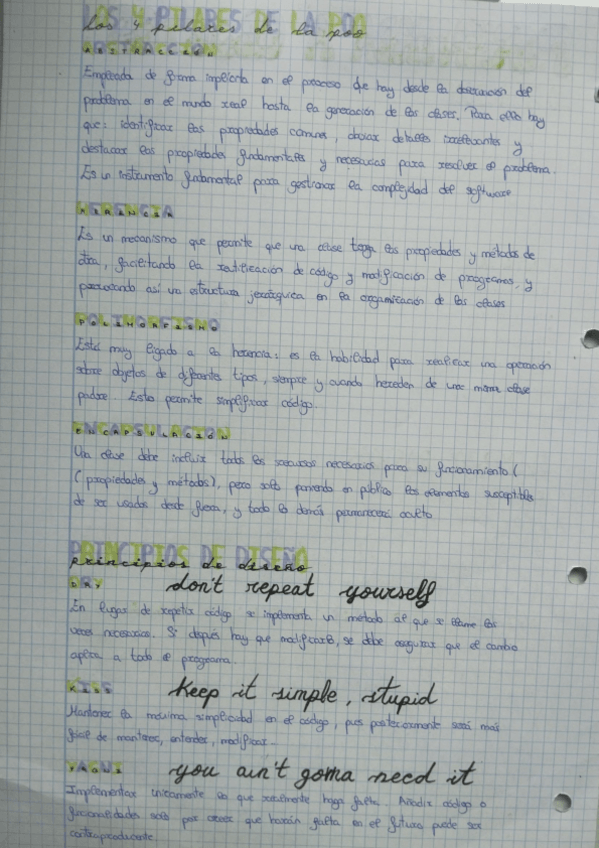 LOS 4 PILARES DE LA POO
Los 4 pilares de la poo
ABSTRACCIÓN
Empleada de forma implícita en el proceso que hay desde la observación del
problema en el mundo real hasta la generación de las clases. Para ello hay
que: identificar las propiedades comunes, obviar detalles irrelevantes y
destacar las propiedades fundamentales y necesarias para resolver el problema.
Es un instrumento fundamental para gestionar la complejidad del software
HERENCIA
Es un mecanismo que permite que una clase tenga las propiedades y métodos de
otra, facilitando la reutilización de código y modificación de programas, y
provocando así una estructura jerárquica en la organización de las clases
POLIMORFISMO
Está muy ligado a la herencia: es la habilidad para realizar una operación
sobre objetos de diferentes tipos, siempre y cuando hereden de una misma clase
padre. Esto permite simplificar código.
ENCAPSULACIÓN
Una clase debe incluir todos los recursos necesarios para su funcionamiento (
(propiedades y métodos), pero solo poniendo en público los elementos susceptibles
de ser usados desde fuera, y todo lo demás permanecerá oculto
PRINCIPIOS DE DISEÑO
principios de diseño
DRY don't repeat yourself
En lugar de repetir código se implementa un método al que se llame las
veces necesarias. Si después hay que modificarlo, se debe asegurar que el cambio
aplica a todo el programa.
KISS Keep it simple, stupid
Mantener la máxima simplicidad en el código, pues posteriormente será más
fácil de mantener, entender, modificar..
YAGNI you ain't gonna need it
Implementar únicamente lo que realmente haga falta. Añadir código o
funcionalidades solo por creer que harán falta en el futuro puede ser
contraproducente.